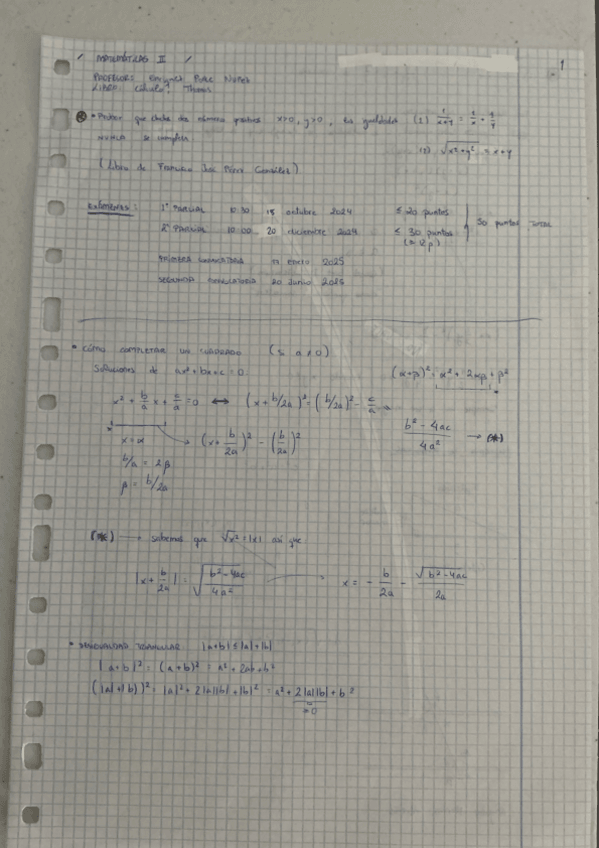 1
MATEMÁTICAS II
PROFESOR:
LIBRO: Cálculo, Thomas
* Probar que dados dos números positivos x>0, y>0, las igualdades (1) 1/(x+y) = 1/x + 1/y
NUNCA se cumplen. (2) √(x²+y²) = x+y
(Libro de Francisco José Pérez González)
EXÁMENES: 1º PARCIAL 10:30 18 octubre 2024 ≤ 20 puntos
2º PARCIAL 10:00 20 diciembre 2024 ≤ 30 puntos 50 puntos TOTAL
PRIMERA CONVOCATORIA 17 enero 2025
SEGUNDA CONVOCATORIA 20 Junio 2025
* CÓMO COMPLETAR UN CUADRADO (si a≠0)
Soluciones de ax²+bx+c=0 (α+β)² = α² + 2αβ + β²
x² + b/a x + c/a = 0 ↔ (x + b/2a)² = (b/2a)² - c/a
(b² - 4ac)/4a² → (*)
x = α → (x + b/2a)² - (b/2a)²
b/a = 2β
β = b/2a
(*) → sabemos que √x² = |x| así que
|x + b/2a| = √((b² - 4ac)/4a²) x = - b/2a - √(b² - 4ac)/2a
* DESIGUALDAD TRIANGULAR |a+b| ≤ |a|+|b|
|a+b|² = (a+b)² = a² + 2ab + b²
(|a|+|b|)² = |a|² + 2|a||b| + |b|² = a² + 2|a||b| + b²